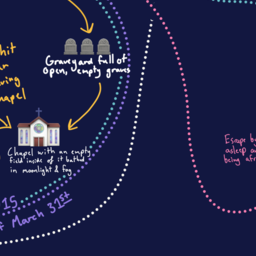 hit
an
ving
chapel
Graveyard full of
open, empty graves
Chapel with an empty
field inside of it bathed
in moonlight & fog
15
of March 31st
Escape by
asleep a
being afr